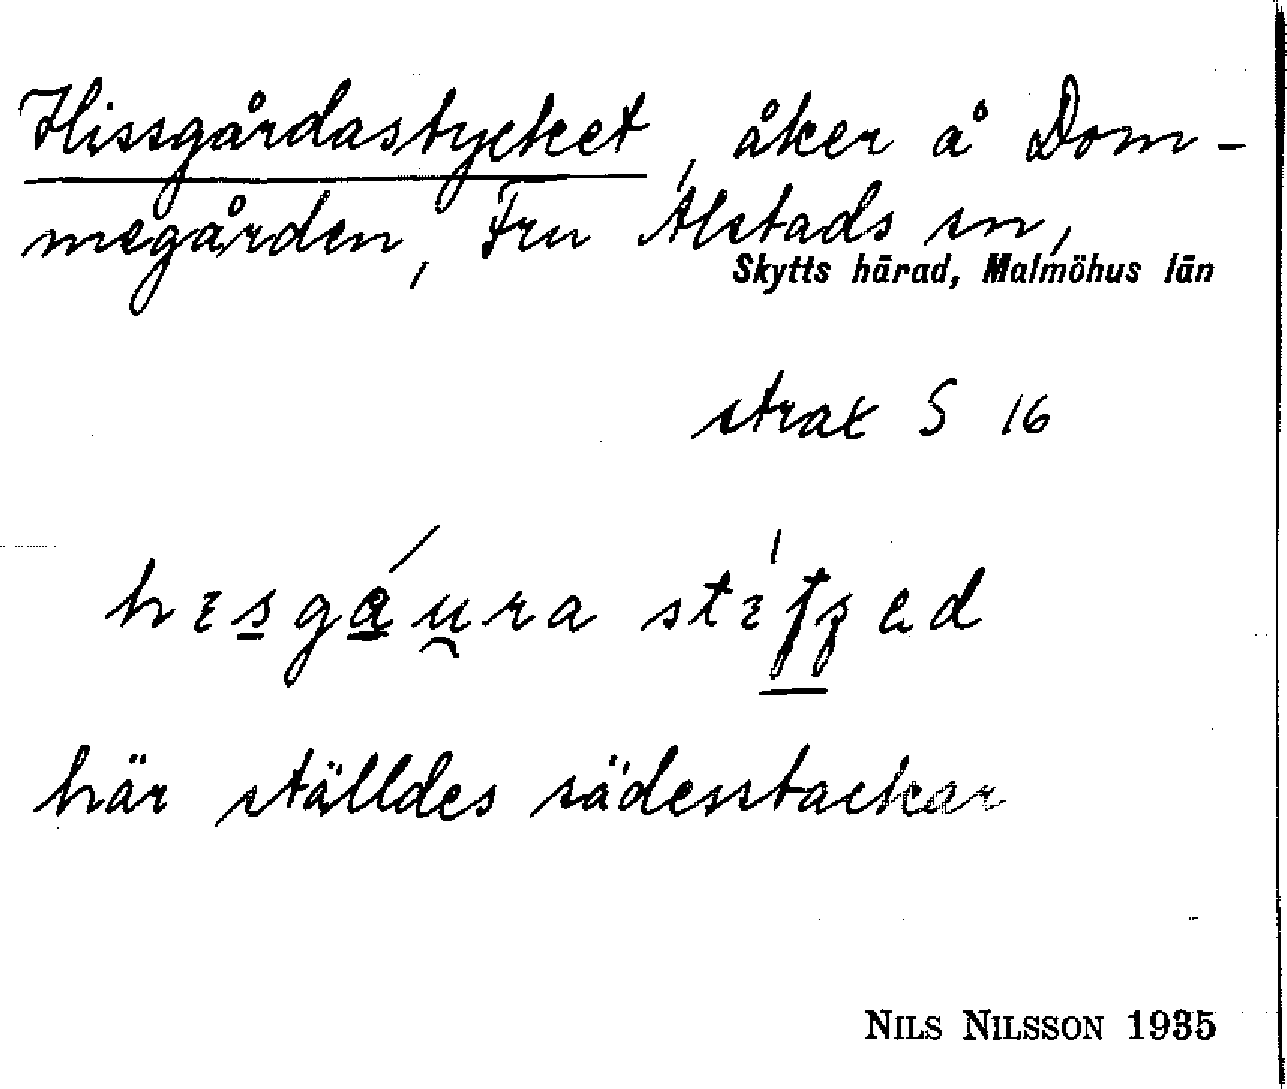 Hissgårdastycket, åker å Dom-
megården, Fru Alstads sn,
Skytts härad, Malmöhus län
strax S 16
här ställdes sädesstackar
NILS NILSSON 1935